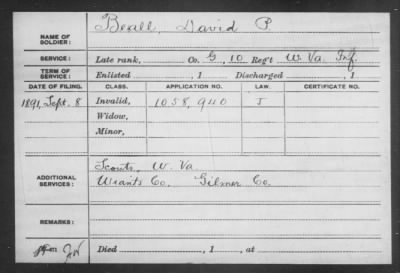 NAME OF SOLDIER: Beall, David P.
SERVICE: Late rank, Co. G, 10 Reg't W. Va. Inf.
TERM OF SERVICE: Enlisted , 1 Discharged , 1
DATE OF FILING. CLASS. APPLICATION NO. LAW. CERTIFICATE NO.
1891, Sept. 8 Invalid, 1058,940 J
Widow,
Minor,
ADDITIONAL SERVICES: Scouts, W. Va.
Co. Gilmer Co.
REMARKS:
Died , 1 , at